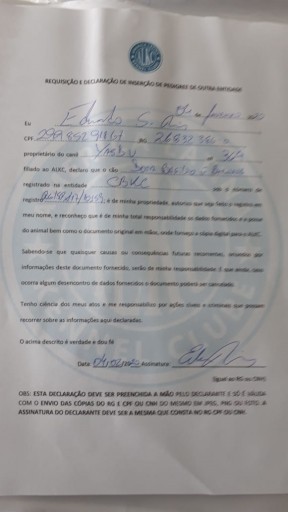 AUKC
REQUISIÇÃO E DECLARAÇÃO DE INSERÇÃO DE PEDIGREE DE OUTRA ENTIDADE
Eu Eduardo S.
CPF RG
proprietário do canil
filiado ao AUKC, declaro que o cão
registrado na entidade CBKC sob o número de
registro é de minha propriedade, autorizo que seja feito o registro em
meu nome, e reconheço que é de minha total responsabilidade os dados fornecidos e a posse
do animal bem como o documento original em mãos, onde forneço a cópia digital para o AUKC.
Sabendo-se que quaisquer causas ou consequências futuras recorrentes, oriundos por
informações deste documento fornecido, serão de minha responsabilidade. E que ainda, caso
ocorra algum desencontro de dados fornecidos o documento poderá ser cancelado.
Tenho ciência dos meus atos e me responsabilizo por ações cíveis e criminais que possam
recorrer sobre as informações aqui declaradas.
O acima descrito é verdade e dou fé
Data: Assinatura:
(igual ao RG ou CNH)
OBS: ESTA DECLARAÇÃO DEVE SER PREENCHIDA A MÃO PELO DECLARANTE E SÓ É VÁLIDA
COM O ENVIO DAS CÓPIAS DO RG E CPF OU CNH DO MESMO EM JPEG, PNG OU FOTO. A
ASSINATURA DO DECLARANTE DEVE SER A MESMA QUE CONSTA NO RG CPF OU CNH.